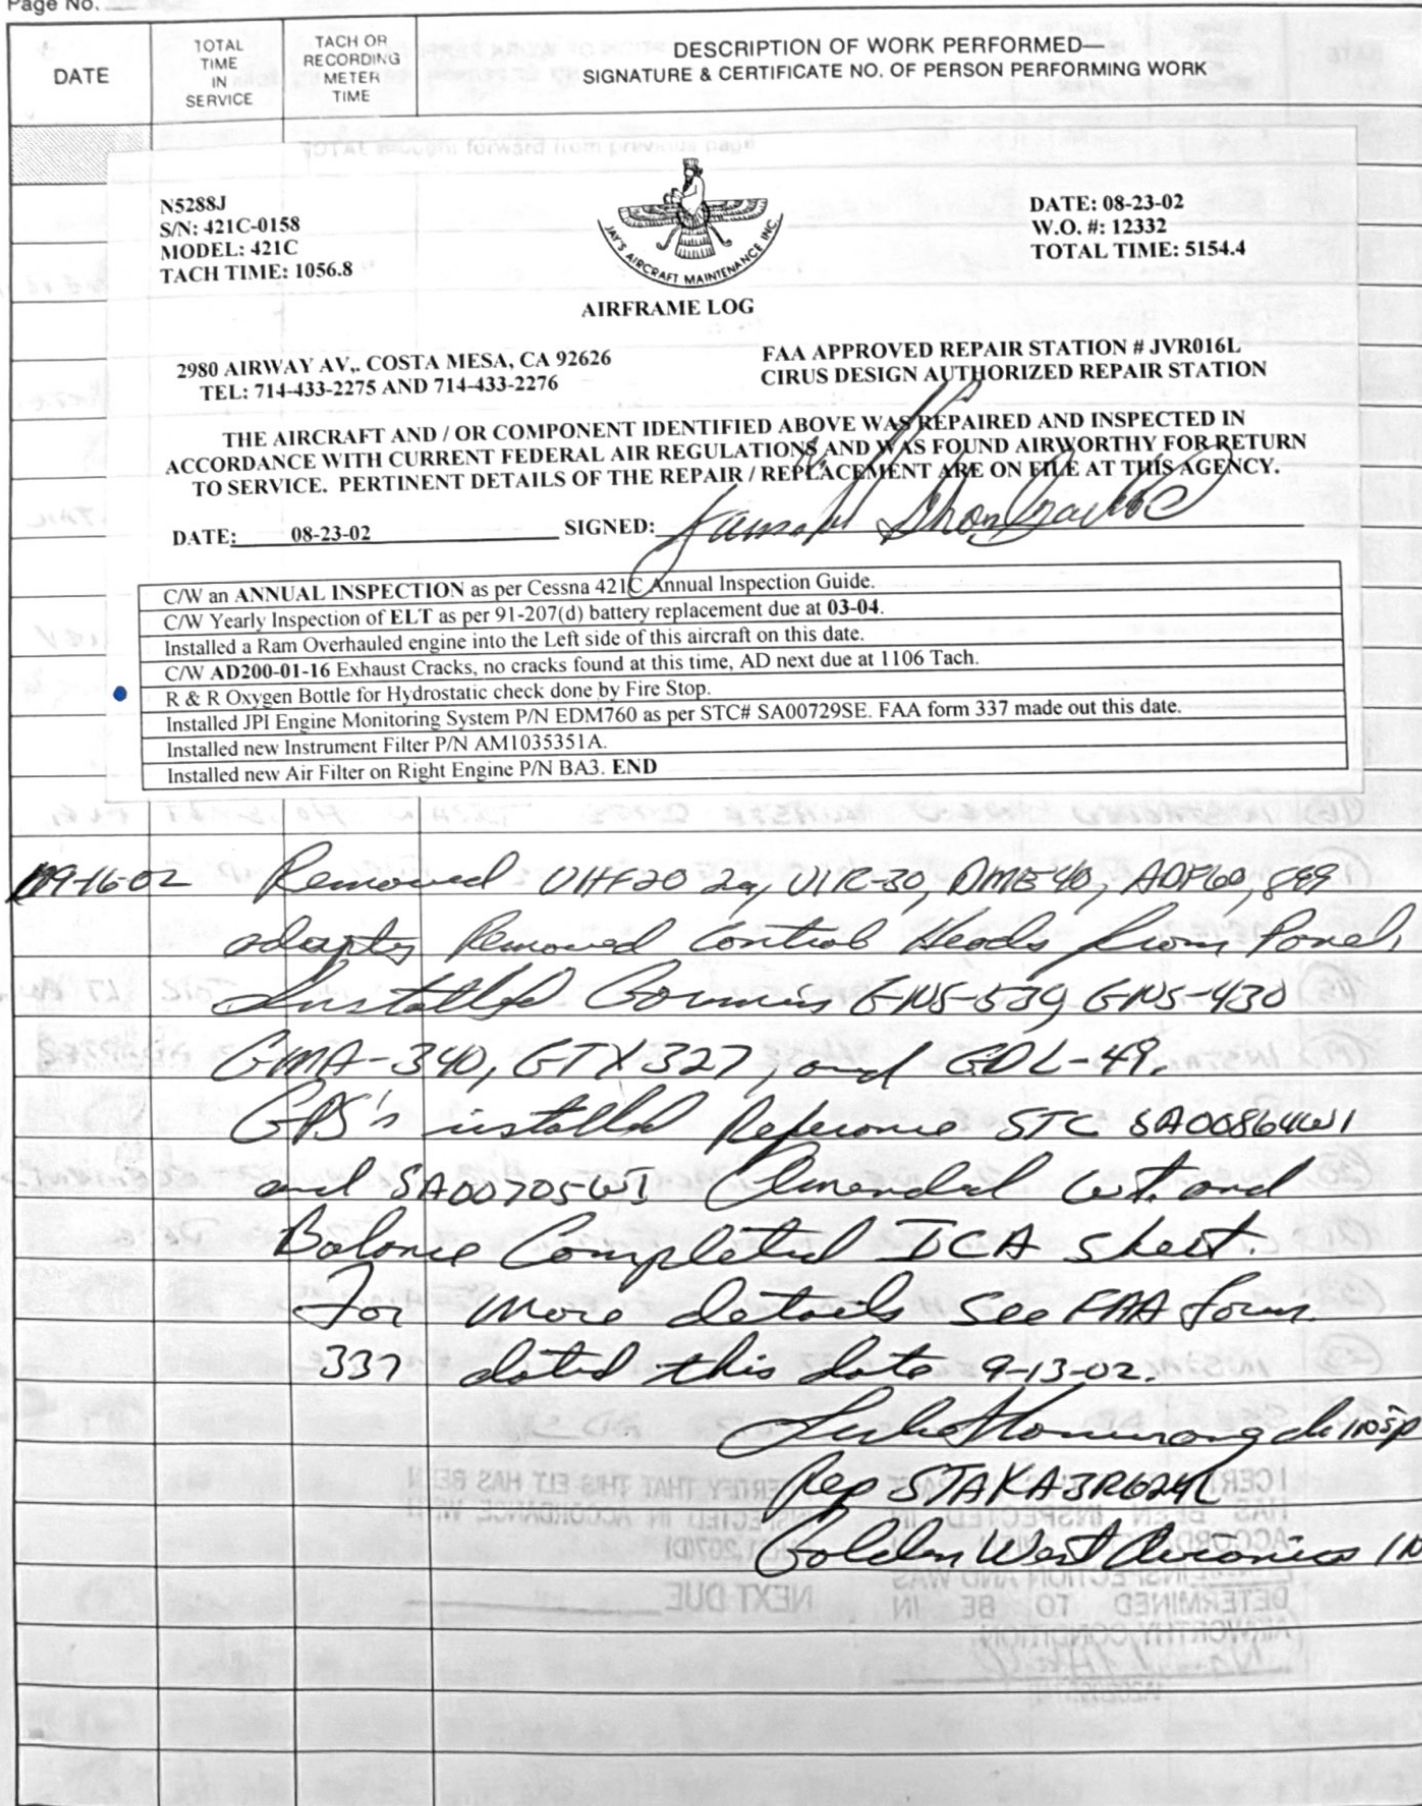 Page No.
DATE
TOTAL
TIME
IN
SERVICE
TACH OR
RECORDING
METER
TIME
DESCRIPTION OF WORK PERFORMED—
SIGNATURE & CERTIFICATE NO. OF PERSON PERFORMING WORK
TOTAL brought forward from previous page
N5288J
S/N: 421C-0158
MODEL: 421C
TACH TIME: 1056.8
JAY'S AIRCRAFT MAINTENANCE INC.
DATE: 08-23-02
W.O. #: 12332
TOTAL TIME: 5154.4
AIRFRAME LOG
2980 AIRWAY AV,. COSTA MESA, CA 92626
TEL: 714-433-2275 AND 714-433-2276
FAA APPROVED REPAIR STATION # JVR016L
CIRUS DESIGN AUTHORIZED REPAIR STATION
THE AIRCRAFT AND / OR COMPONENT IDENTIFIED ABOVE WAS REPAIRED AND INSPECTED IN
ACCORDANCE WITH CURRENT FEDERAL AIR REGULATIONS AND WAS FOUND AIRWORTHY FOR RETURN
TO SERVICE. PERTINENT DETAILS OF THE REPAIR / REPLACEMENT ARE ON FILE AT THIS AGENCY.
DATE: 08-23-02 SIGNED:
C/W an ANNUAL INSPECTION as per Cessna 421C Annual Inspection Guide.
C/W Yearly Inspection of ELT as per 91-207(d) battery replacement due at 03-04.
Installed a Ram Overhauled engine into the Left side of this aircraft on this date.
C/W AD200-01-16 Exhaust Cracks, no cracks found at this time, AD next due at 1106 Tach.
R & R Oxygen Bottle for Hydrostatic check done by Fire Stop.
Installed JPI Engine Monitoring System P/N EDM760 as per STC# SA00729SE. FAA form 337 made out this date.
Installed new Instrument Filter P/N AM1035351A.
Installed new Air Filter on Right Engine P/N BA3. END
09-16-02 Removed VHF20 VIR-30, DME 40, ADF60,
Removed Control Heads from Panel,
Installed GNS-430
GMA-340, GTX327, and GDL-49.
GPS's installed Reference STC SA00864WI
and SA00705WI Amended Wt. and
Balance Completed sheet.
For more details See FAA form
337 dated this date 9-13-02.
Insp
Rep STA KA3R624L
Golden West Avionics IN